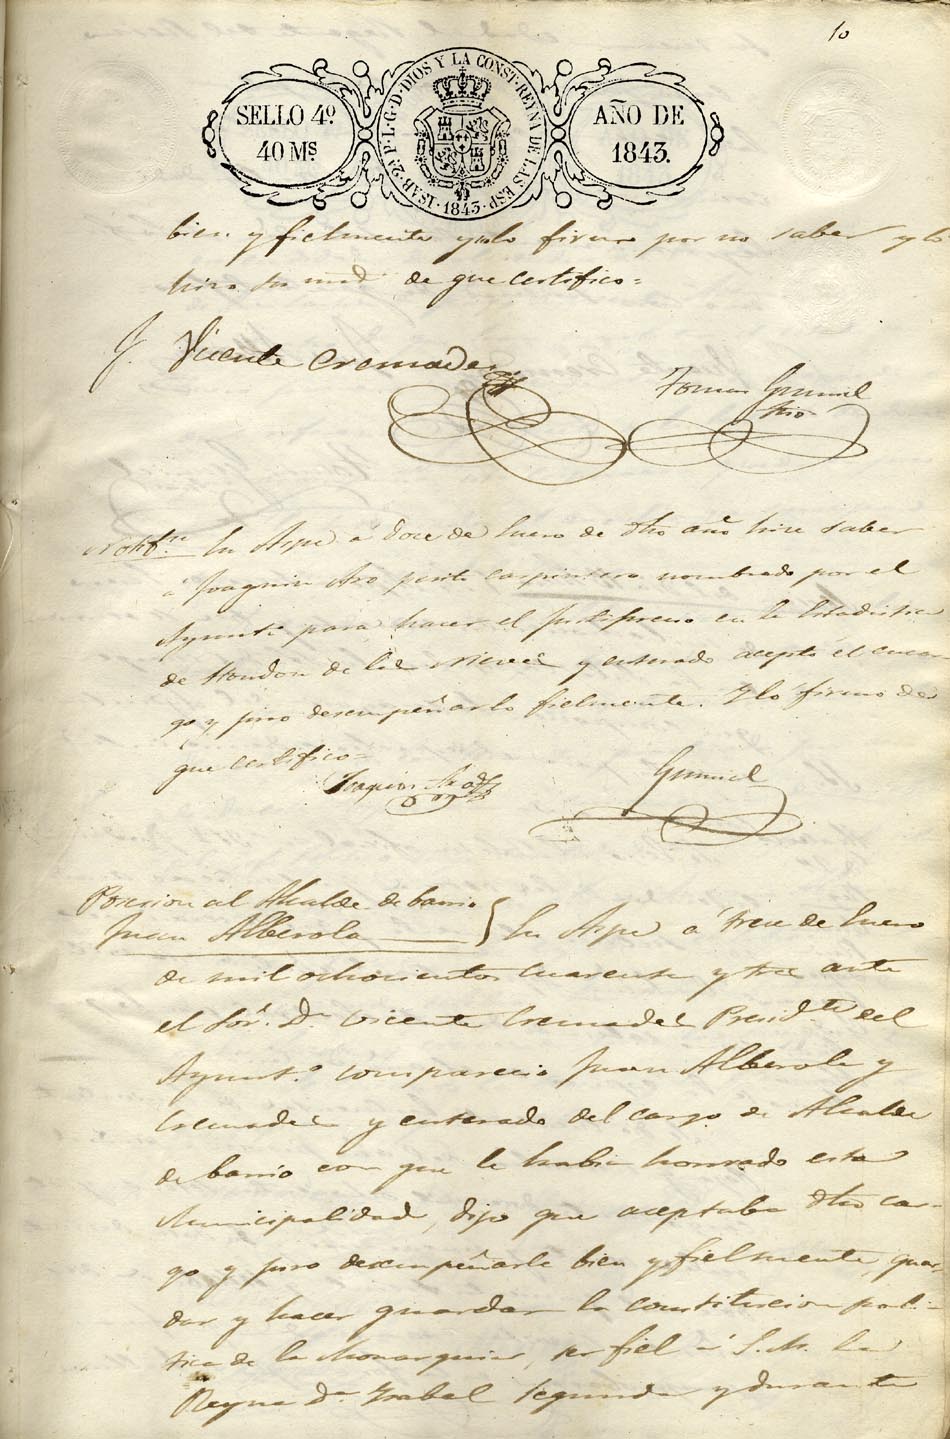 10
SELLO 4º
40 Ms
ISAB. 2ª P. L. G. D. DIOS Y LA CONST. REYNA DE LAS ESP.
1843
AÑO DE
1843.
bien y fielmente y no lo firmo por no saber y lo
hizo su md de que certifico=
Vicente Cremades
Tomas
Srio
Notifn. En Aspe á doce de Enero de dho año hice saber
á Joaquin Aro perito carpintero nombrado por el
Ayunto para hacer el justiprecio en la Estadistica
de Hondon de las Nieves y enterado aceptó el encar
go y juro desempeñarlo fielmente. Y lo firmo de
que certifico=
Joaquin Aro
Posesion al Alcalde de barrio
Juan Alberola
En Aspe á trece de Enero
de mil ochocientos cuarenta y tres ante
el Sor. Dn Vicente Cremades Presidte del
Ayunto. comparecio Juan Alberola y
Cremades y enterado del cargo de Alcalde
de barrio con que le habia honrado esta
Municipalidad, dijo que aceptaba dho car-
go y juro desempeñarle bien y fielmente, guar-
dar y hacer guardar la constitucion poli-
tica de la Monarquia, ser fiel á S. M. la
Reyna Da Ysabel Segunda y durante